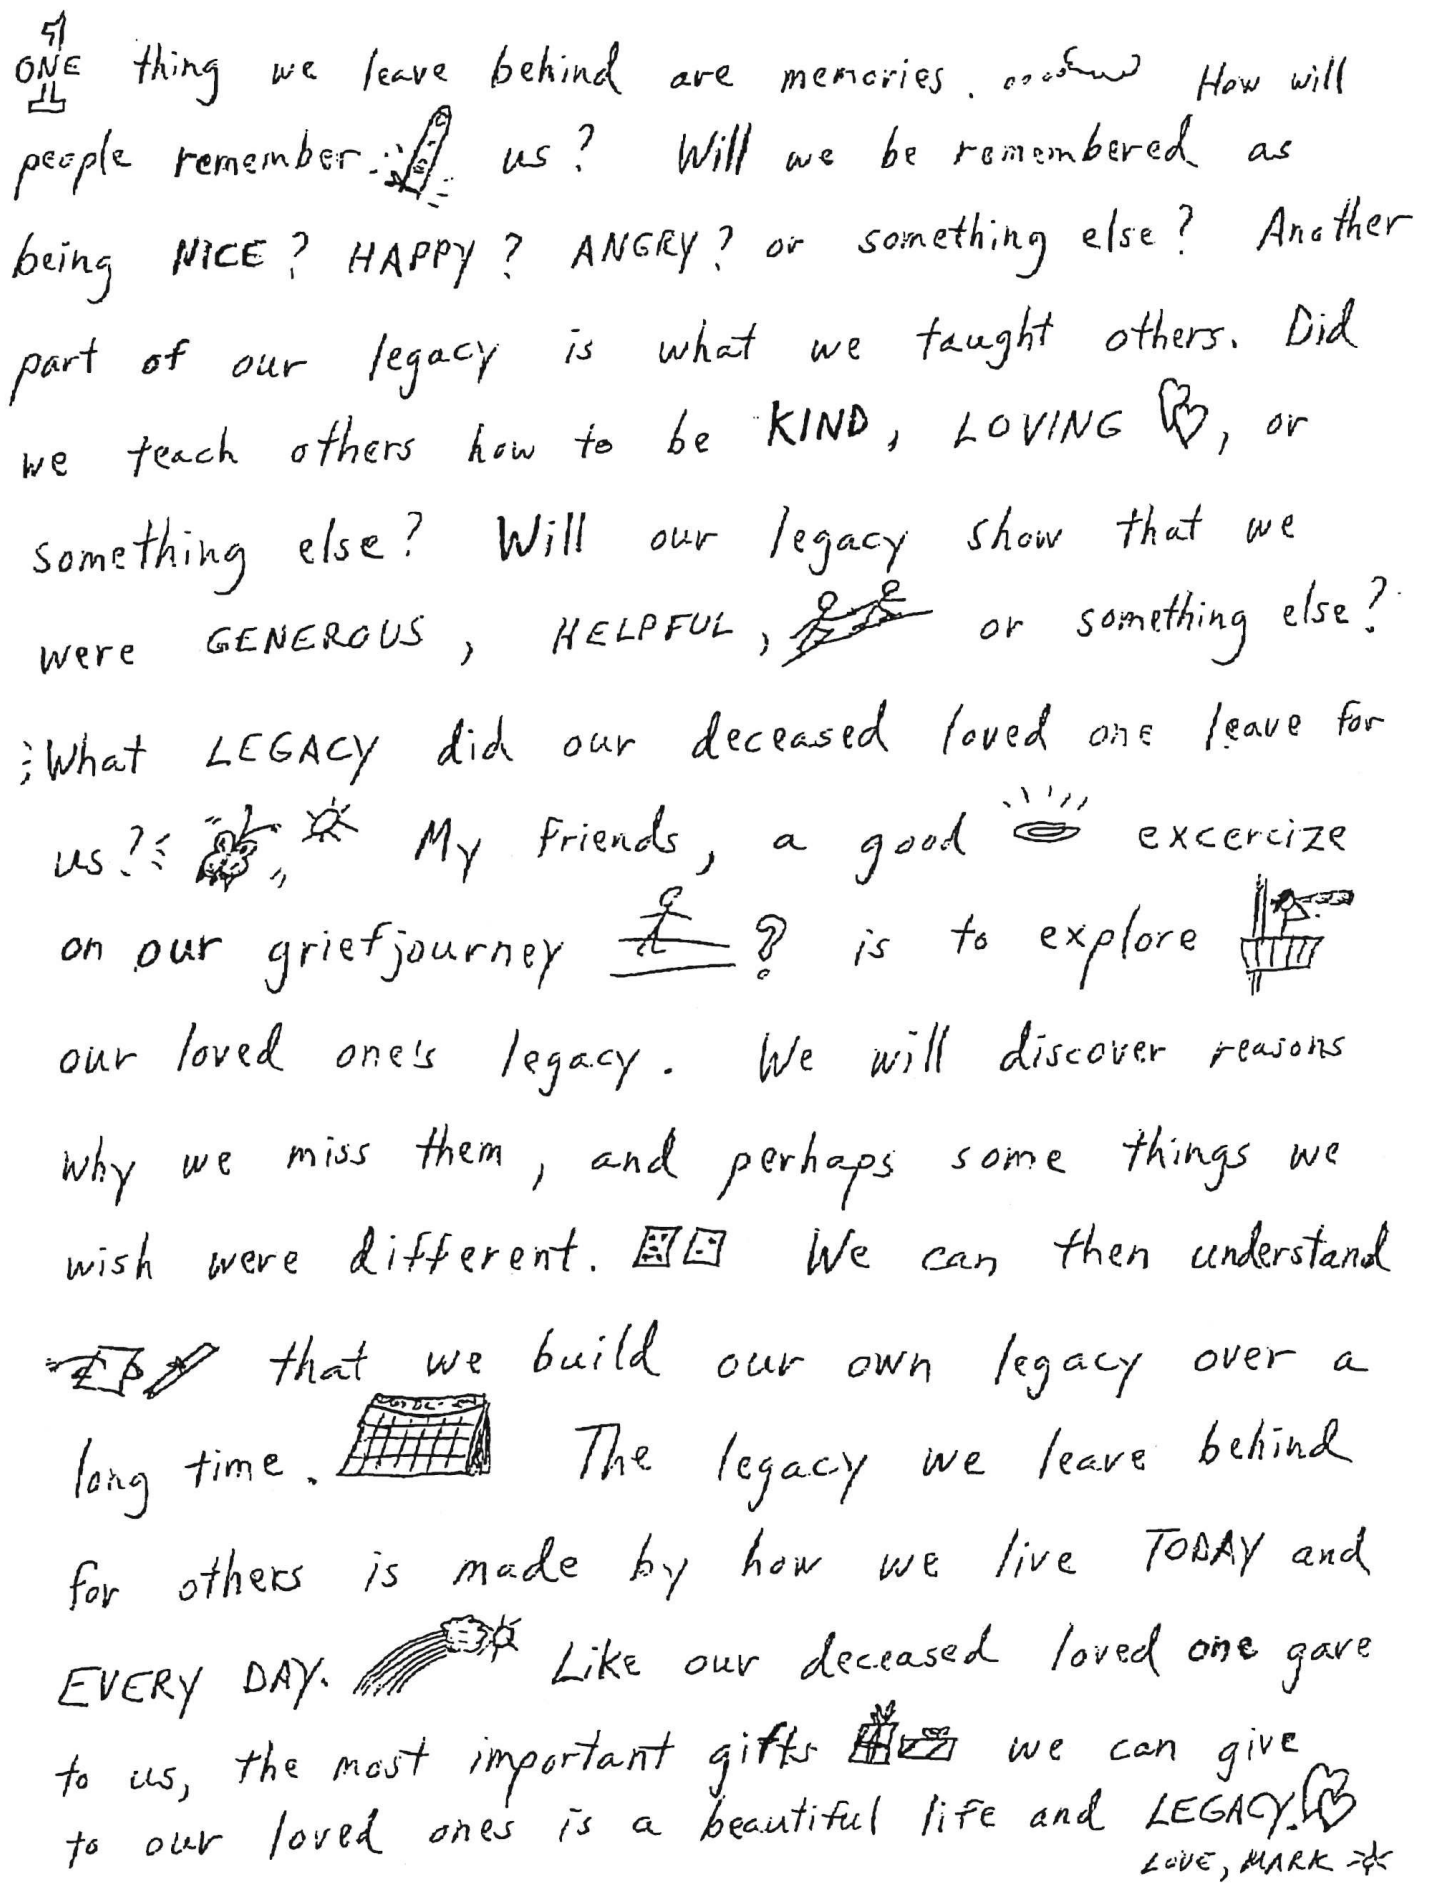 ONE thing we leave behind are memories. How will
people remember us? Will we be remembered as
being NICE? HAPPY? ANGRY? or something else? Another
part of our legacy is what we taught others. Did
we teach others how to be KIND, LOVING, or
something else? Will our legacy show that we
were GENEROUS, HELPFUL, or something else?
What LEGACY did our deceased loved one leave for
us? My friends, a good excercize
on our grief journey is to explore
our loved one's legacy. We will discover reasons
why we miss them, and perhaps some things we
wish were different. We can then understand
that we build our own legacy over a
long time. The legacy we leave behind
for others is made by how we live TODAY and
EVERY DAY. Like our deceased loved one gave
to us, the most important gifts we can give
to our loved ones is a beautiful life and LEGACY.
LOVE, MARK